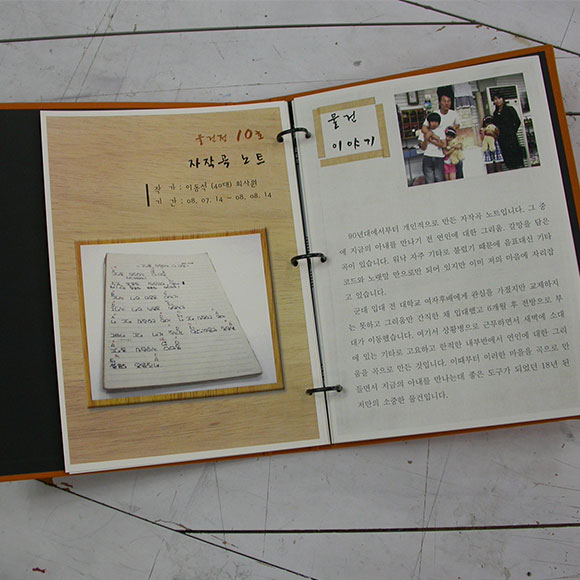 물건전 10호
자작곡 노트
작 가 : 이동석 (40대) 회사원
기 간 : 08. 07. 14 ~ 08. 08. 14
물건
이야기
90년대에서부터 개인적으로 만든 자작곡 노트입니다. 그 중
에 지금의 아내를 만나기 전 연인에 대한 그리움, 갈망을 담은
곡이 있습니다. 워낙 자주 기타로 불렀기 때문에 음표대신 기타
코드와 노랫말 만으로만 되어 있지만 이미 저의 마음에 자리잡
고 있습니다.
군대 입대 전 대학교 여자후배에게 관심을 가졌지만 교제하지
는 못하고 그리움만 간직한 채 입대했고 6개월 후 전방으로 부
대가 이동했습니다. 여기서 상황병으로 근무하면서 새벽에 소대
에 있는 기타로 고요하고 한적한 내무반에서 연인에 대한 그리
움을 곡으로 만든 것입니다. 이때부터 이러한 마음을 곡으로 만
들면서 지금의 아내를 만나는데 좋은 도구가 되었던 18년 된
저만의 소중한 물건입니다.